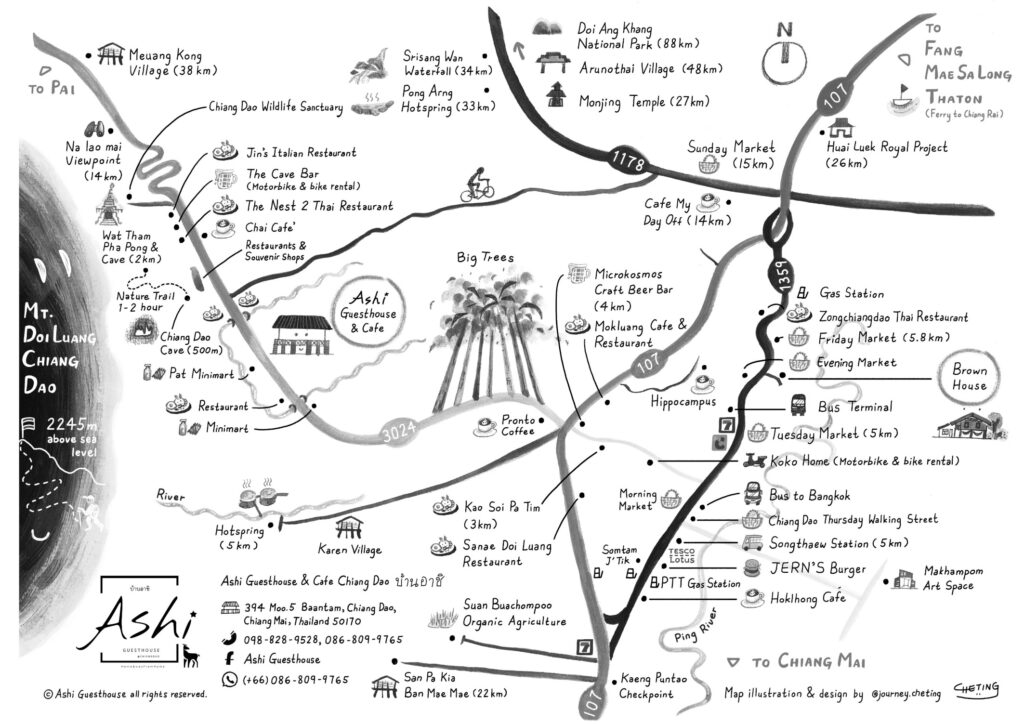 Meuang Kong
Village (38 km)
TO PAI
Srisang Wan
Waterfall (34km)
Pong Arng
Hotspring (33 km)
Doi Ang Khang
National Park (88 km)
Arunothai Village (48km)
Monjing Temple (27 km)
N
TO
FANG
MAE SA LONG
THATON
(Ferry to Chiang Rai)
107
Chiang Dao Wildlife Sanctuary
Na lao mai
Viewpoint
(14 km)
Jin's Italian Restaurant
The Cave Bar
(Motorbike & bike rental)
The Nest 2 Thai Restaurant
Chai Cafe'
Restaurants &
Souvenir Shops
1178
Sunday Market
(15 km)
Huai Luek Royal Project
(26 km)
Cafe My
Day Off (14 km)
Wat Tham
Pha Pong &
Cave (2 km)
Nature Trail
1-2 hour
Chiang Dao
Cave (500m)
Ashi
Guesthouse
& Cafe
Big Trees
Microkosmos
Craft Beer Bar
(4 km)
Mokluang Cafe &
Restaurant
107
1359
Gas Station
Zongchiangdao Thai Restaurant
Friday Market (5.8 km)
Evening Market
Brown
House
MT.
DOI LUANG
CHIANG
DAO
2245m
above sea
level
Pat Minimart
Restaurant
Minimart
3024
Pronto
Coffee
Hippocampus
Bus Terminal
7
Tuesday Market (5 km)
Koko Home (Motorbike & bike rental)
River
Hotspring
(5 km)
Karen Village
Kao Soi Pa Tim
(3km)
Sanae Doi Luang
Restaurant
Morning
Market
Bus to Bangkok
Chiang Dao Thursday Walking Street
Songthaew Station (5 km)
Somtam
J'Tik
TESCO
Lotus
JERN'S Burger
PTT Gas Station
Hoklhong Café
Makhampom
Art Space
บ้านอาชิ
Ashi
GUESTHOUSE
Ashi Guesthouse & Cafe Chiang Dao บ้านอาชิ
394 Moo.5 Baantam, Chiang Dao,
Chiang Mai, Thailand 50170
098-828-9528, 086-809-9765
f Ashi Guesthouse
(+66) 086-809-9765
Suan Buachompoo
Organic Agriculture
7
San Pa Kia
Ban Mae Mae (22 km)
Kaeng Puntao
Checkpoint
107
Ping River
TO CHIANG MAI
© Ashi Guesthouse all rights reserved.
Map illustration & design by @journey.cheting
CHETING